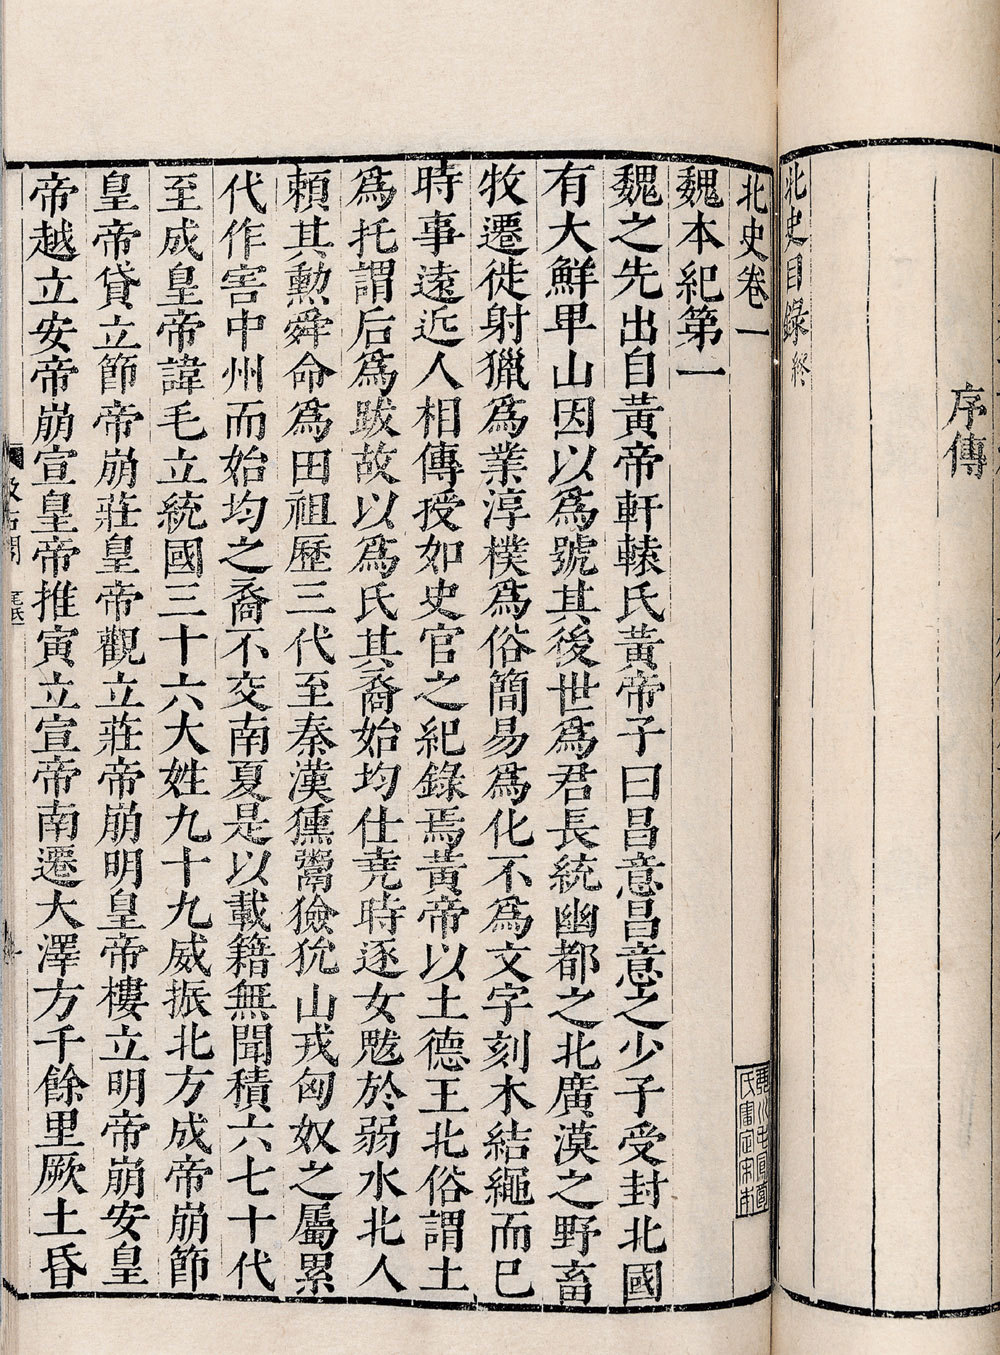 序傳
北史目錄終
北史卷一
魏本紀第一
魏之先出自黃帝軒轅氏黃帝子曰昌意昌意之少子受封北國
有大鮮卑山因以爲號其後世爲君長統幽都之北廣漠之野畜
牧遷徙射獵爲業淳樸爲俗簡易爲化不爲文字刻木結繩而已
時事遠近人相傳授如史官之紀錄焉黃帝以土德王北俗謂土
爲托謂后爲跋故以爲氏其裔始均仕堯時逐女魃於弱水北人
賴其勳舜命爲田祖歷三代至秦漢獯鬻獫狁山戎匈奴之屬累
代作害中州而始均之裔不交南夏是以載籍無聞積六七十代
至成皇帝諱毛立統國三十六大姓九十九威振北方成帝崩節
皇帝貸立節帝崩莊皇帝觀立莊帝崩明皇帝樓立明帝崩安皇
帝越立安帝崩宣皇帝推寅立宣帝南遷大澤方千餘里厥土昏